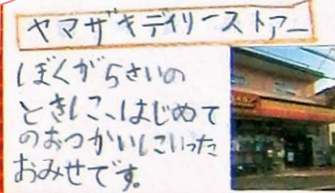 ヤマザキデイリーストアー
ぼくが5さいの
ときに、はじめて
のおつかいにいった
おみせです。